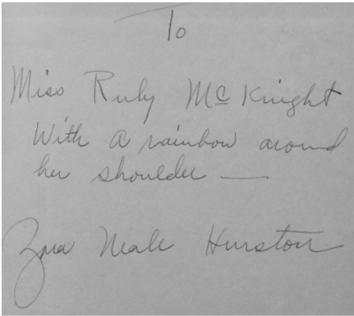 To
Miss Ruby McKnight
With a rainbow around
her shoulder —
Zora Neale Hurston